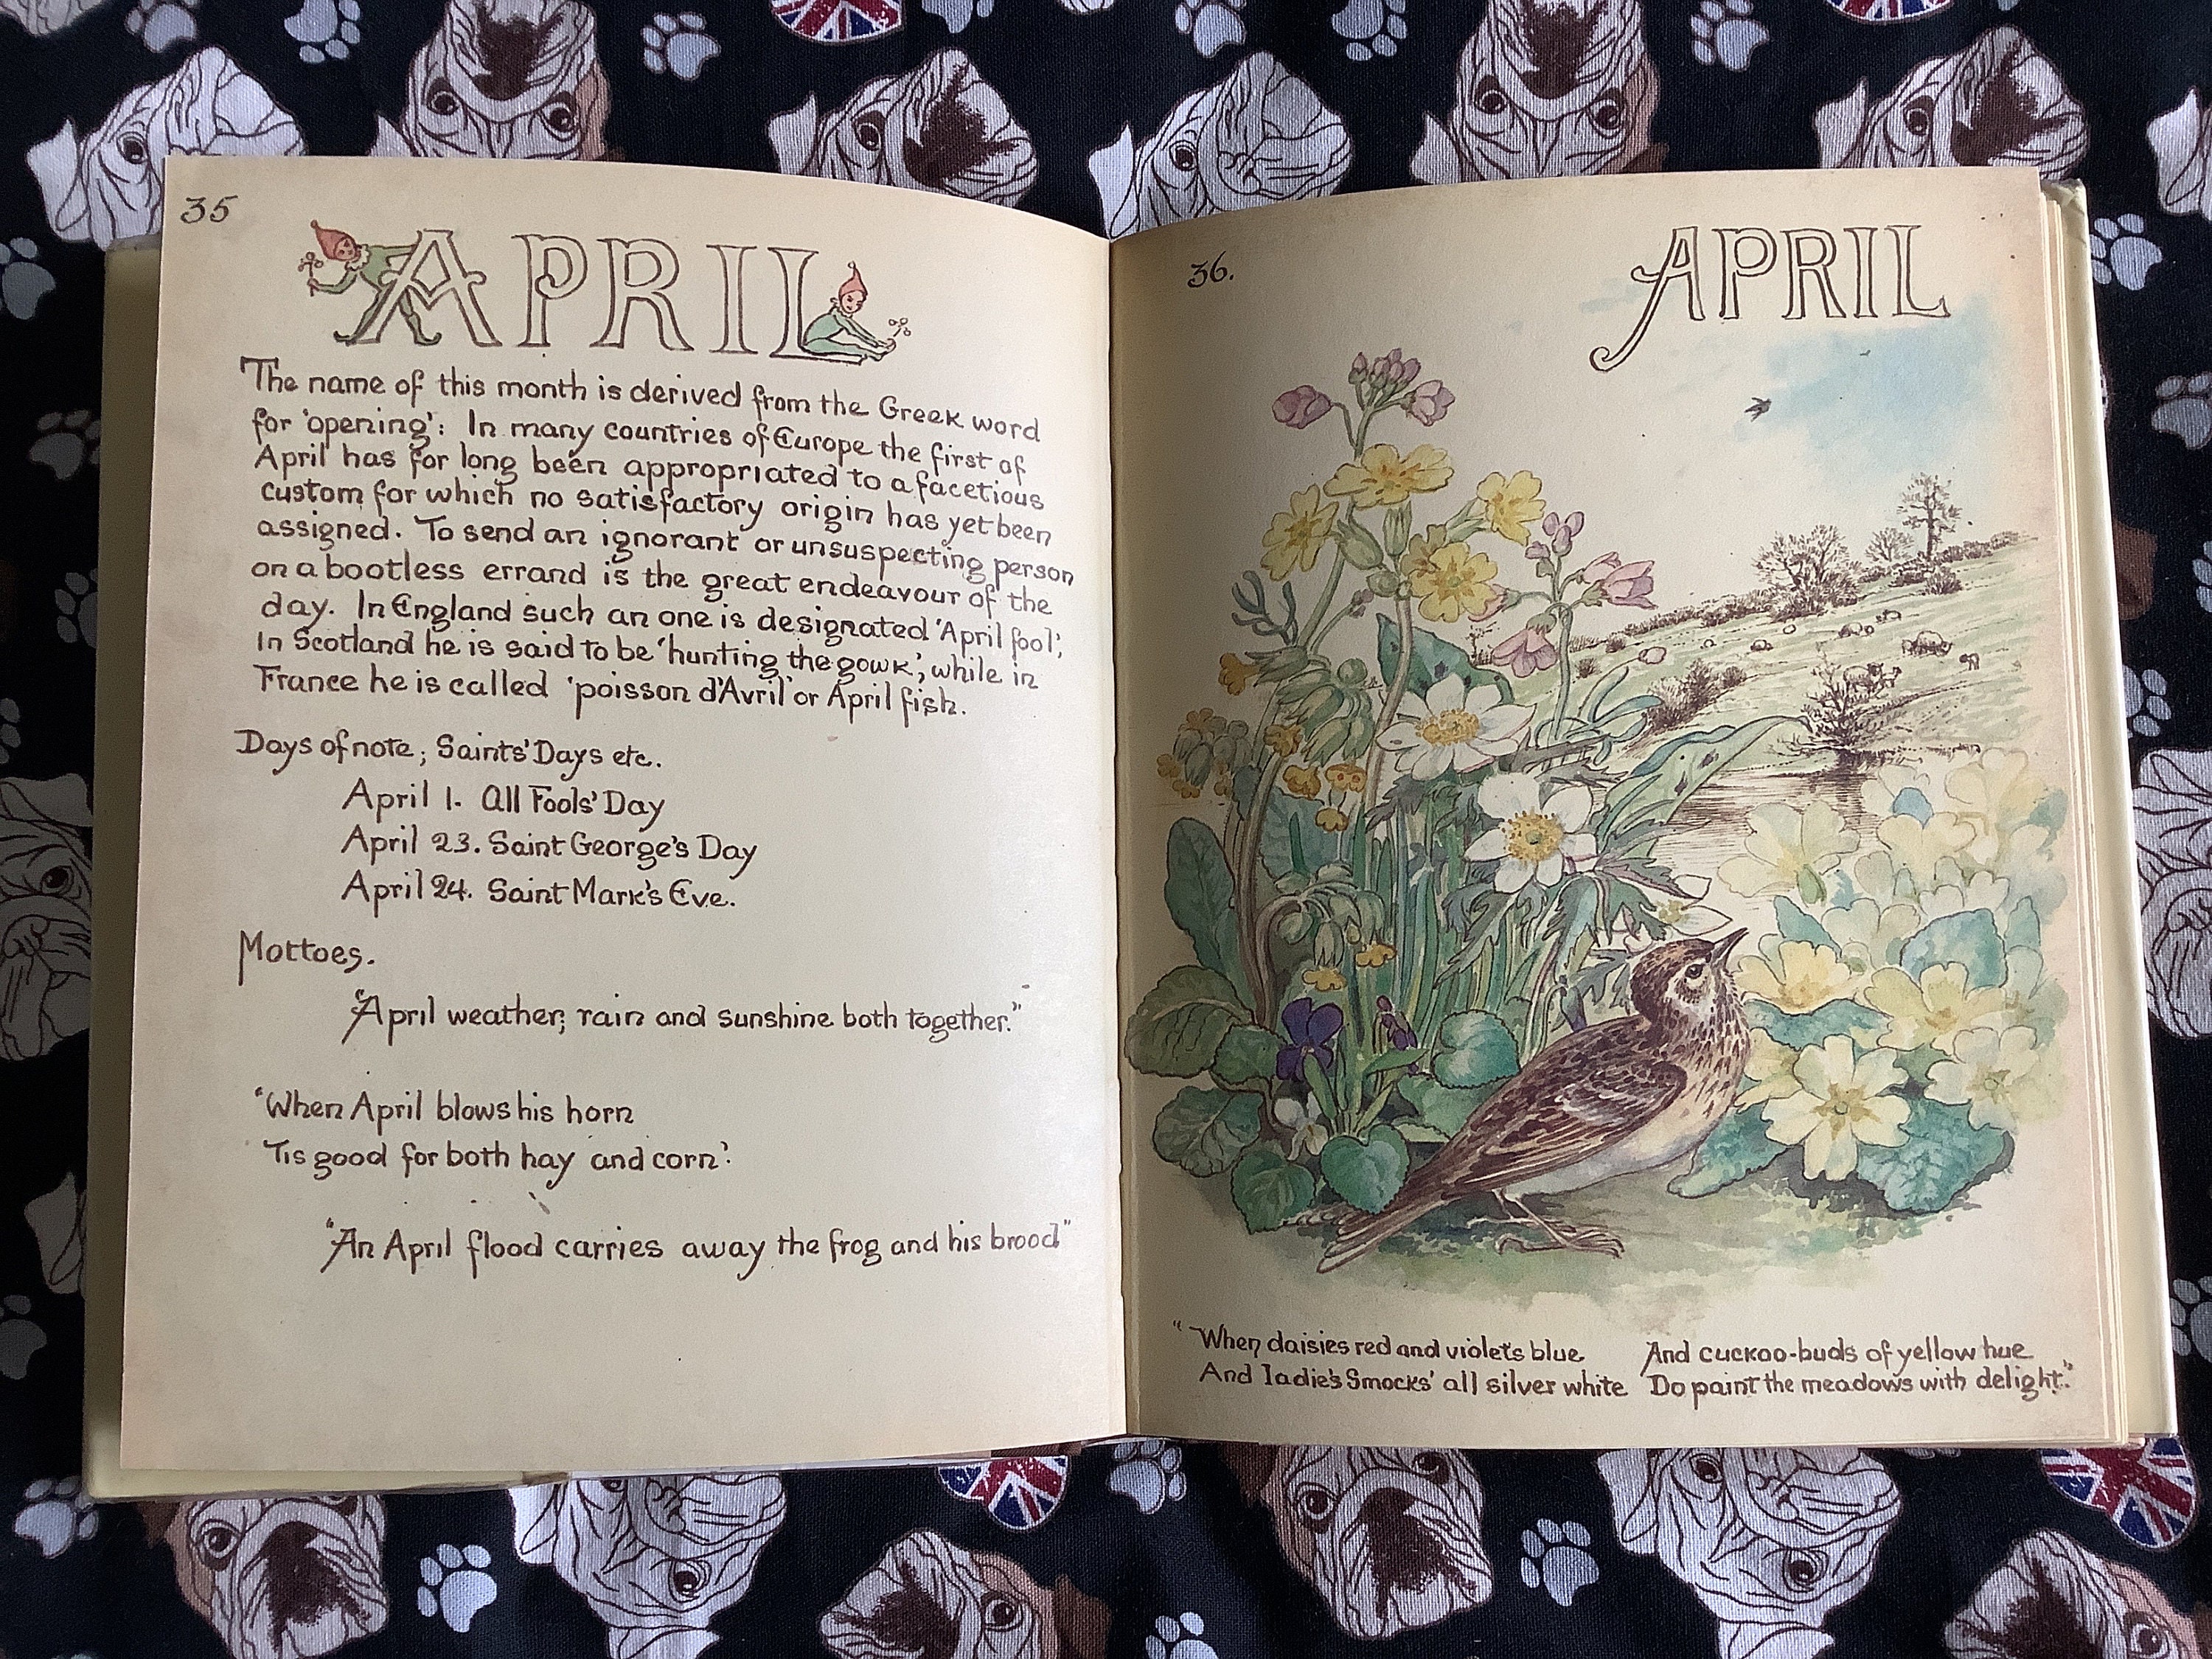 35
APRIL
The name of this month is derived from the Greek word
for 'opening': In many countries of Europe the first of
April has for long been appropriated to a facetious
custom for which no satisfactory origin has yet been
assigned. To send an ignorant or unsuspecting person
on a bootless errand is the great endeavour of the
day. In England such an one is designated 'April fool';
In Scotland he is said to be 'hunting the gowk', while in
France he is called 'poisson d'Avril' or April fish.
Days of note; Saints' Days etc.
April 1. All Fools' Day
April 23. Saint George's Day
April 24. Saint Mark's Eve.
Mottoes.
"April weather; rain and sunshine both together."
"When April blows his horn
'Tis good for both hay and corn".
"An April flood carries away the frog and his brood"
36.
APRIL
"When daisies red and violets blue
And ladie's Smocks' all silver white
And cuckoo-buds of yellow hue
Do paint the meadows with delight."